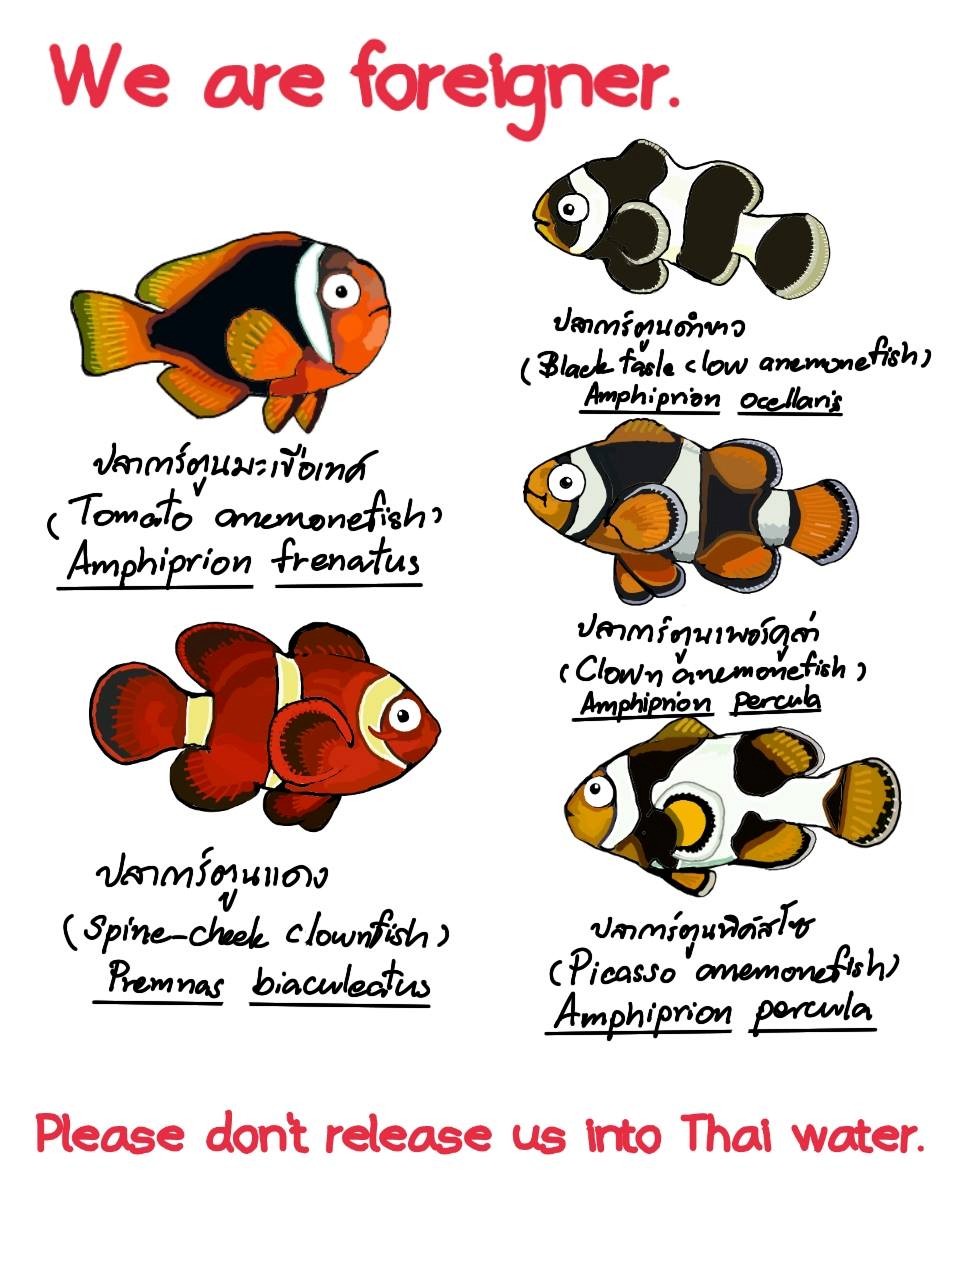 We are foreigner.
ปลาการ์ตูนมะเขือเทศ
(Tomato anemonefish)
Amphiprion frenatus
ปลาการ์ตูนแดง
(Spine-cheek clownfish)
Premnas biaculeatus
ปลาการ์ตูนดำขาว
(Black fasle clow anemonefish)
Amphiprion ocellaris
ปลาการ์ตูนเพอร์คูล่า
(Clown anemonefish)
Amphiprion percula
ปลาการ์ตูนพิคัสโซ
(Picasso anemonefish)
Amphiprion percula
Please don't release us into Thai water.